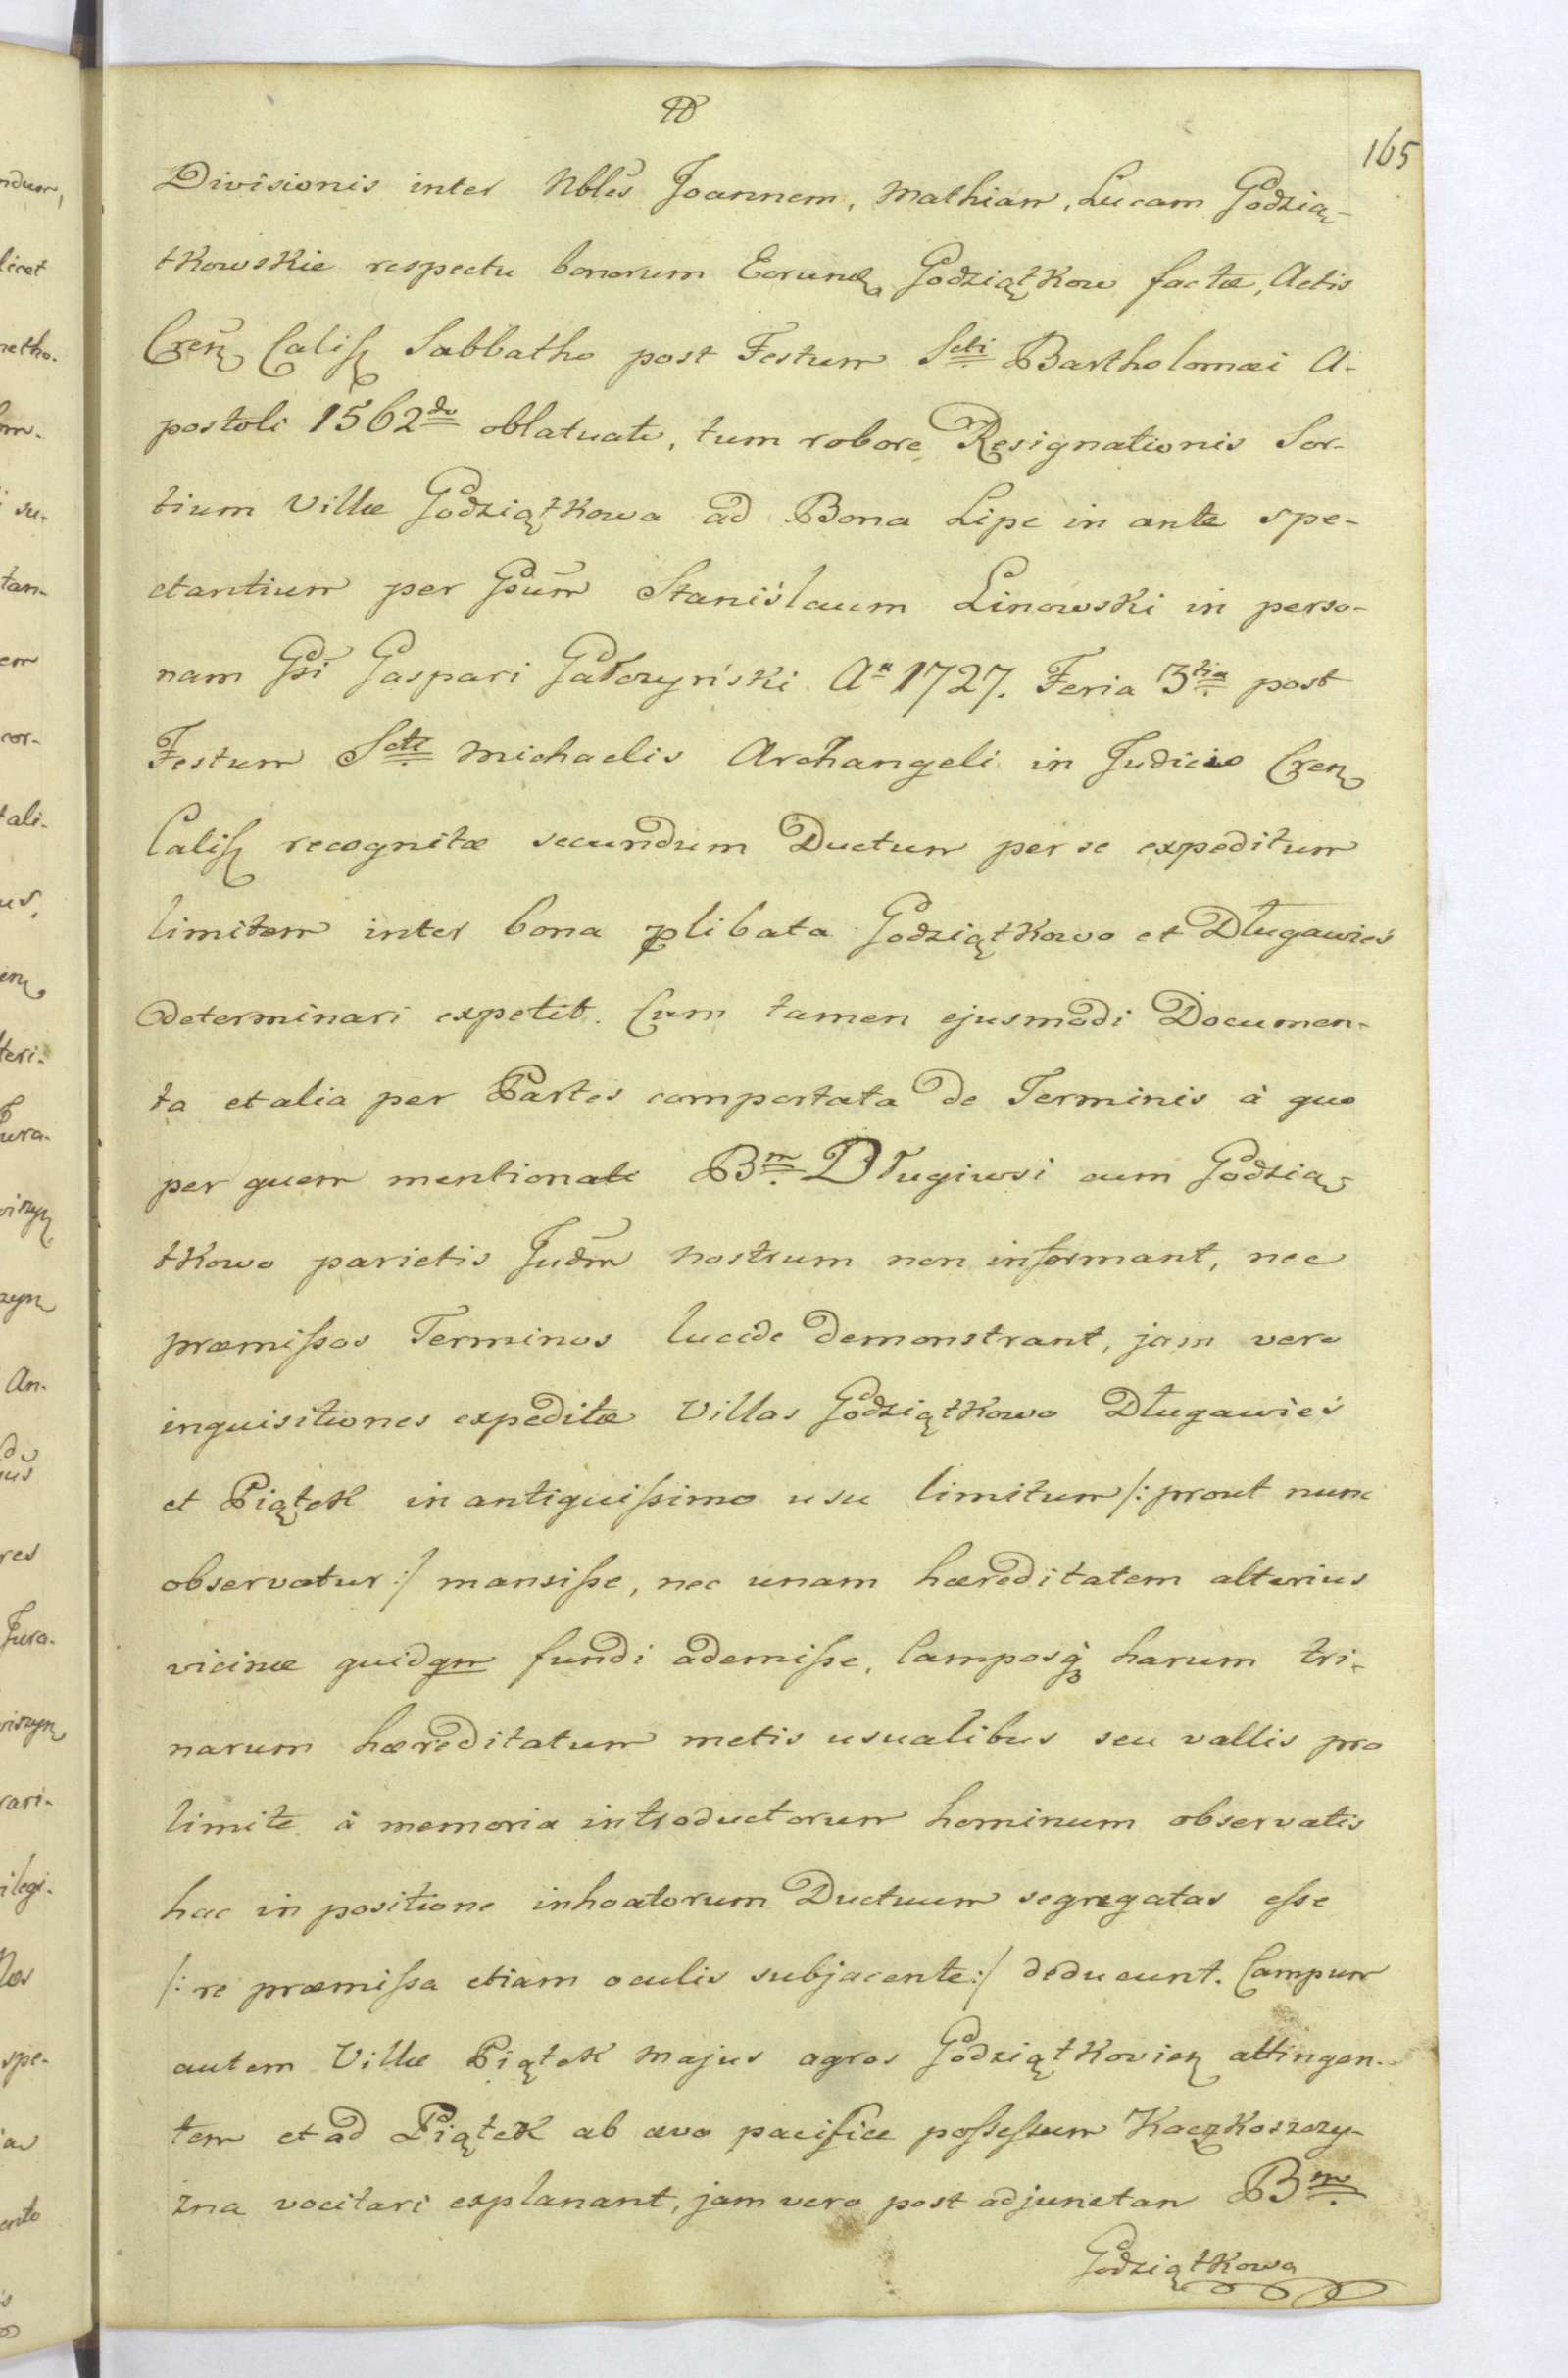 165
Divisionis inter Nbles Joannem, Mathiam, Lucam Godzią-
tkowskie respectu bonorum Eorund Godziątkow factæ, Actis
Cren Calis Sabbatho post Festum Scti Bartholomæi A-
postoli 1562do oblatuati, tum robore Resignationis Sor-
tium Villæ Godziątkowa ad Bona Lipe in ante spe-
ctantium per Gsum Stanisławm Linowski in perso-
nam Gsi Gaspari Gałczyński Aº 1727. Feria 3tia post
Festum Scti Michaelis Archangeli in Judicio Cren
Calis recognitæ secundum Ductum per se expeditum
limitem inter bona plibata Godziątkowo et Długawieś
determinari expetit. Cum tamen ejusmodi Documen-
ta et alia per Partes comportata de Terminis à quo
per quem mentionati Bm. Długiwsi cum Godzią-
tkowo parietis Judm nostrum non informant, nec
præmissos Terminos lucide demonstrant, jam vero
inquisitiones expeditæ Villas Godziątkowo Długawieś
et Piątek in antiquissimo usu limitum /: prout nunc
observatur :/ mansisse, nec unam hæreditatem alterius
vicinæ quidqm fundi ademisse, Camposq harum tri-
narum hæreditatum metis usualibus seu vallis pro
limite à memoria introductorum hominum observatis
hac in positione inhoatorum Ductuum segregatas esse
/: re præmissa etiam oculis subjacente :/ deducunt. Campum
autem Villæ Piątek Majus agros Godziątkovien attingen-
tem et ad Piątek ab ævo pacifice possessum Kaczkoszczy-
zna vocitari explanant, jam vero post adjunctan Bm.
Godziątkowa